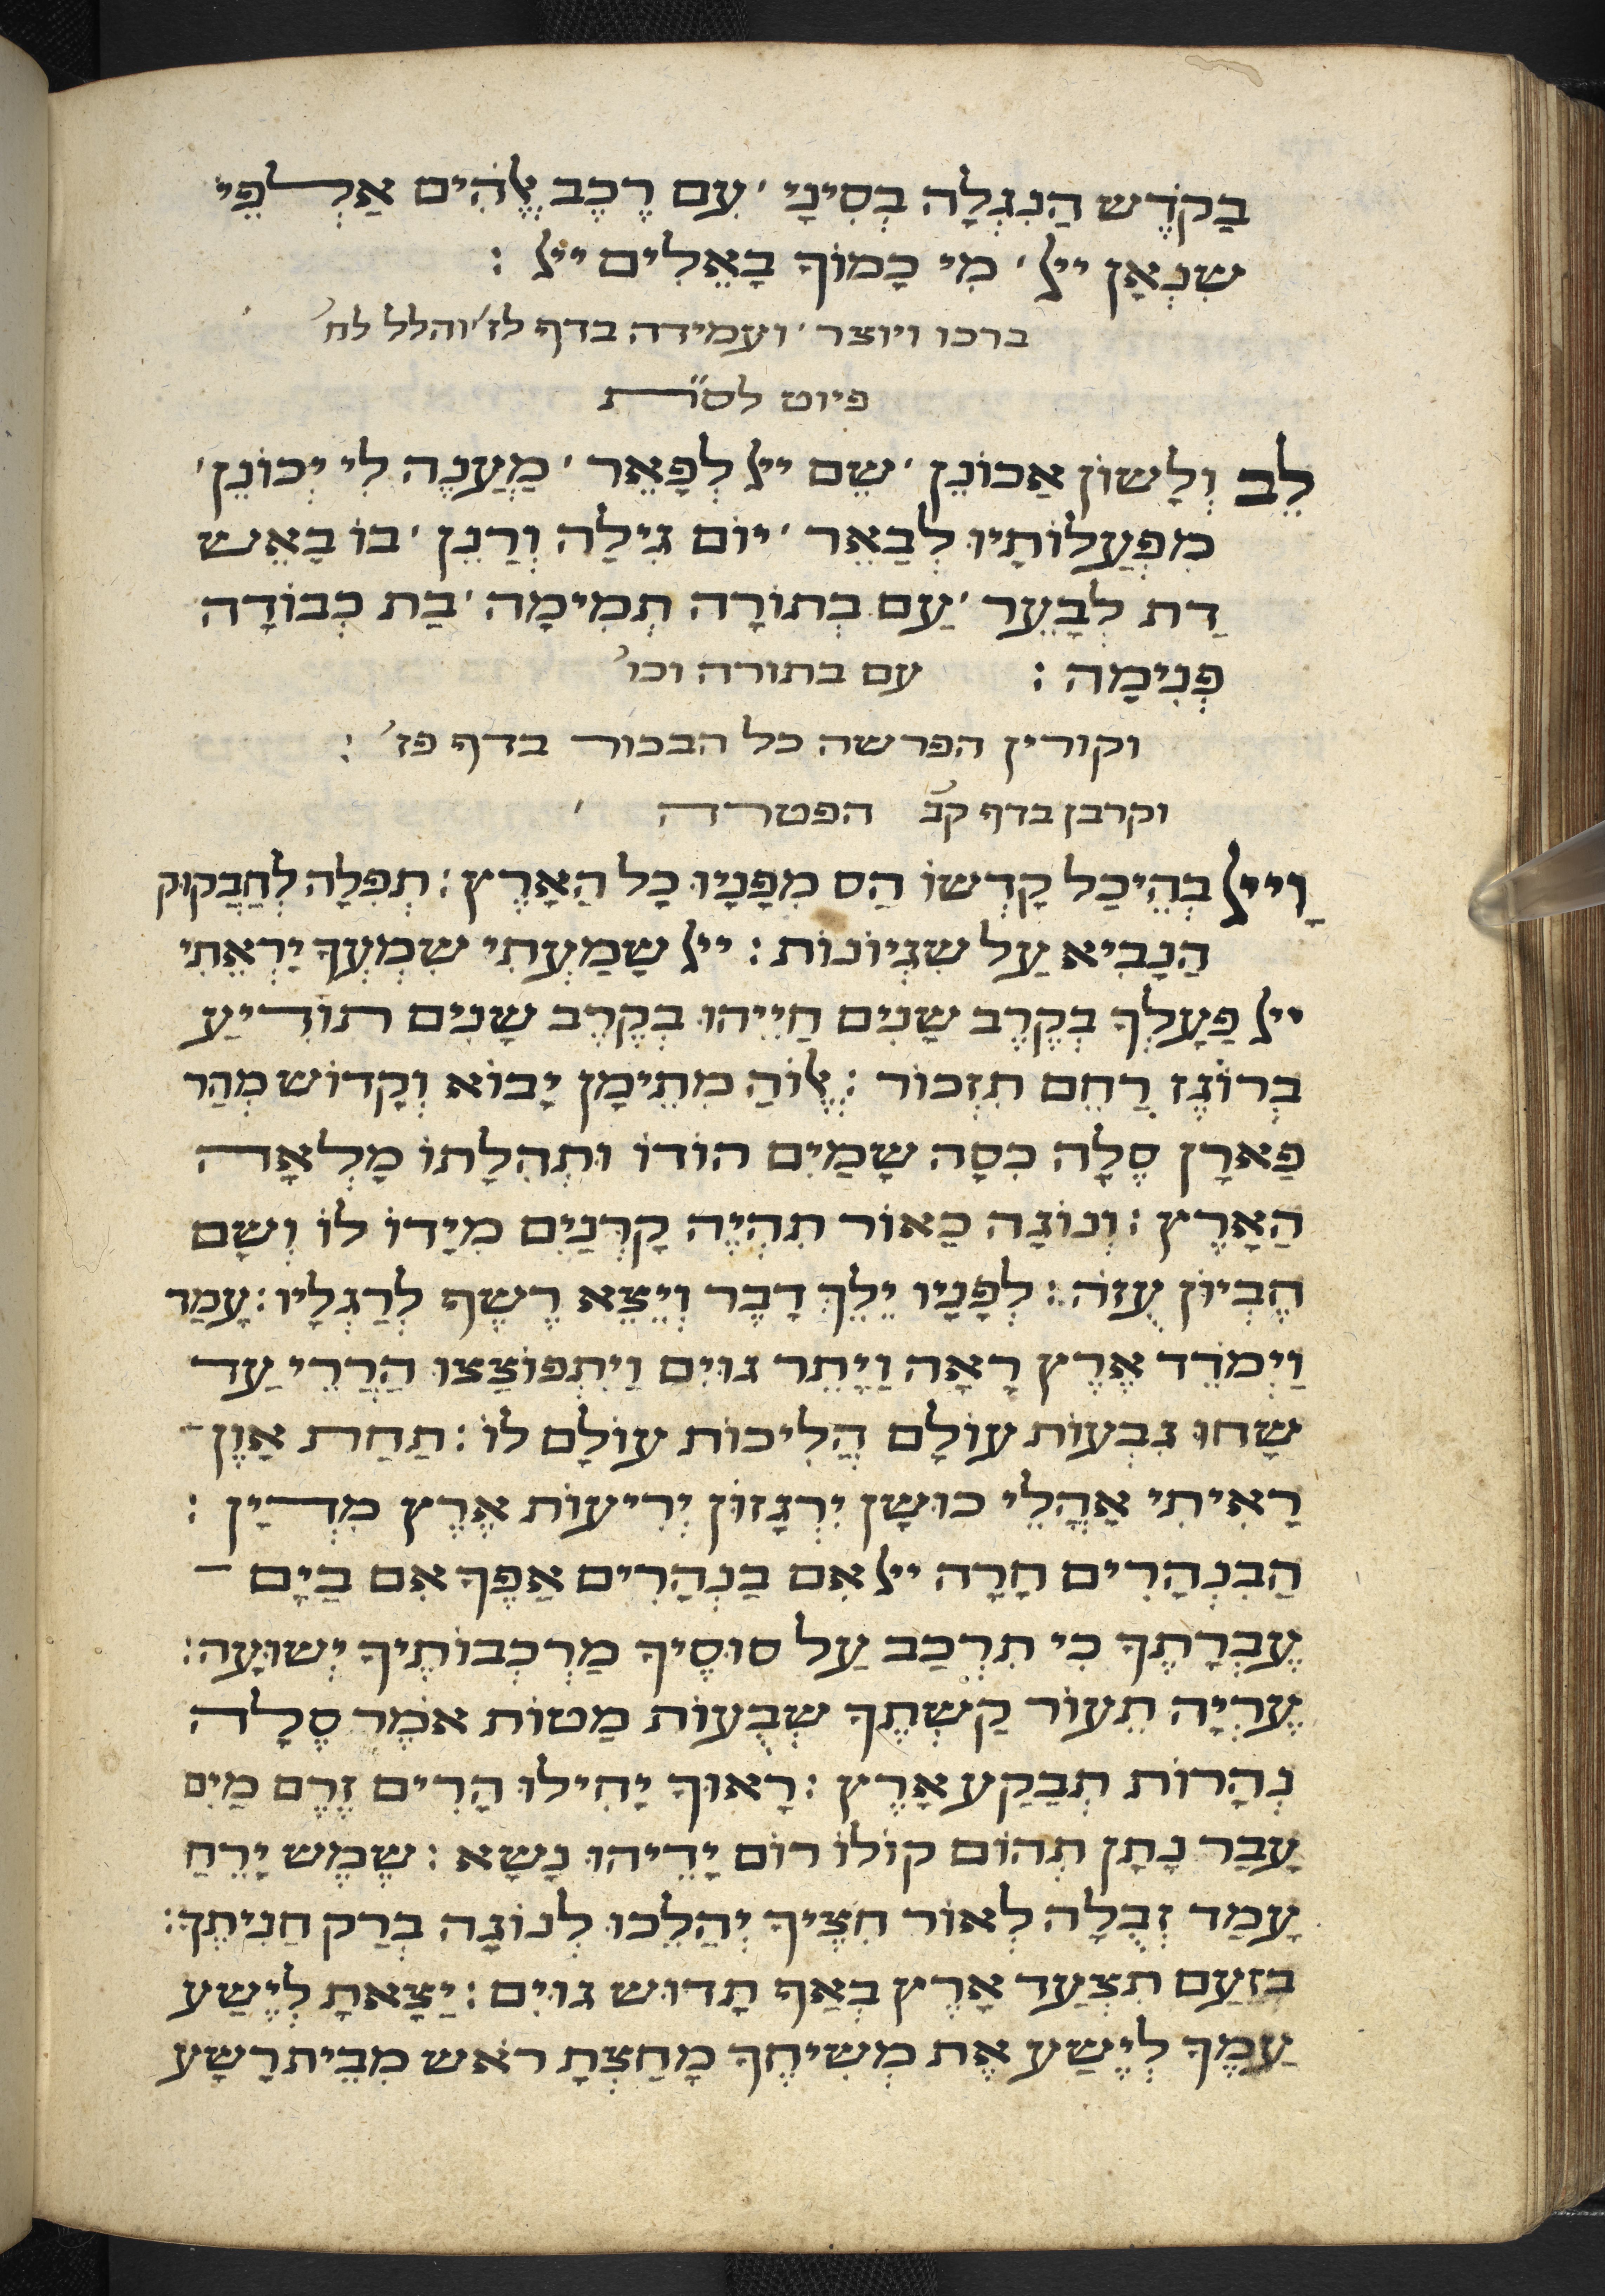 בַקֹדֶשׁ הַנִגְלָה בְסִינָי ׳ עִם רֶכֶב אֱלֹהִים אַלְפֵי
שִׁנְאָן ייל ׳ מִי כָמוֹךָ בָאֵלִים ייל :
ברכו ויוצר ׳ ועמידה בדף לז׳ והלל לח׳
פיוט לס״ת
לֵב וְלָשׁוֹן אֲכוֹנֵן ׳ שֵׁם ייל לְפָאֵר ׳ מַעֲנֶה לִי יְכוֹנֵן ׳
מִפְעֲלוֹתָיו לְבָאֵר ׳ יוֹם גִילָה וְרַנֵן ׳ בוֹ בָאֵשׁ
דַת לְבָעֵר ׳ עַם בְתוֹרָה תְמִימָה ׳ בַת כְבוּדָה
פְנִימָה : עם בתורה וכו׳
וקורין הפרשה כל הבכור בדף פז׳ :
וקרבן בדף קנ׳ הפטרה ׳
וַייל בְהֵיכַל קָדְשׁוֹ הַס מִפָנָיו כָל הָאָרֶץ : תְפִלָה לְחֲבַקוּק
הַנָבִיא עַל שִׁגְיוֹנוֹת : ייל שָׁמַעְתִי שִׁמְעֲךָ יָרֵאתִי
ייל פָעָלְךָ בְקֶרֶב שָׁנִים חַיֵיהוּ בְקֶרֶב שָׁנִים תוֹדִיעַ
בְרוֹגֶז רַחֵם תִזְכוֹר : אֱלוֹהַ מִתֵימָן יָבוֹא וְקָדוֹשׁ מֵהַר
פָארָן סֶלָה כִסָה שָׁמַיִם הוֹדוֹ וּתְהִלָתוֹ מָלְאָה
הָאָרֶץ : וְנוֹגָה כָאוֹר תִהְיֶה קַרְנַיִם מִיָדוֹ לוֹ וְשָׁם
חֶבְיוֹן עֻזֹה : לְפָנָיו יֵלֶךְ דָבֶר וְיֵצֵא רֶשֶׁף לְרַגְלָיו : עָמַד
וַיְמֹדֵד אֶרֶץ רָאָה וַיַתֵר גוֹיִם וַיִתְפוֹצְצוּ הַרֲרֵי עַד
שָׁחוּ גִבְעוֹת עוֹלָם הֲלִיכוֹת עוֹלָם לוֹ : תַחַת אָוֶן
רָאִיתִי אָהֳלֵי כוּשָׁן יִרְגָזוּן יְרִיעוֹת אֶרֶץ מִדְיָן :
הַבִנְהָרִים חָרָה ייל אִם בַנְהָרִים אַפֶךָ אִם בַיָם
עֶבְרָתֶךָ כִי תִרְכַב עַל סוּסֶיךָ מַרְכְבוֹתֶיךָ יְשׁוּעָה :
עֶרְיָה תֵעוֹר קַשְׁתֶךָ שְׁבֻעוֹת מַטוֹת אֹמֶר סֶלָה
נְהָרוֹת תְבַקַע אָרֶץ : רָאוּךָ יָחִילוּ הָרִים זֶרֶם מַיִם
עָבַר נָתַן תְהוֹם קוֹלוֹ רוֹם יָדֵיהוּ נָשָׂא : שֶׁמֶשׁ יָרֵחַ
עָמַד זְבֻלָה לְאוֹר חִצֶיךָ יְהַלֵכוּ לְנוֹגָה בְרַק חֲנִיתֶךָ :
בְזַעַם תִצְעַד אָרֶץ בְאַף תָדוּשׁ גוֹיִם : יָצָאתָ לְיֵשַׁע
עַמֶךָ לְיֵשַׁע אֶת מְשִׁיחֶךָ מָחַצְתָ רֹאשׁ מִבֵית רָשָׁע